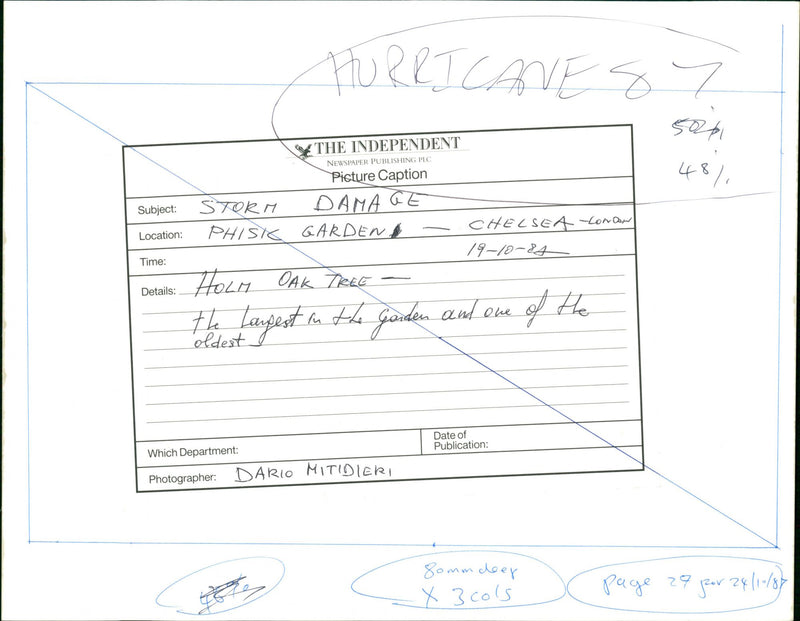 HURRICANE 87
50%
48%
THE INDEPENDENT
NEWSPAPER PUBLISHING PLC
Picture Caption
Subject: STORM DAMAGE
Location: PHISIC GARDEN — CHELSEA - LONDON
Time: 19-10-87
Details: HOLM OAK TREE —
the largest in the garden and one of the
oldest
Which Department:
Date of
Publication:
Photographer: DARIO MITIDIERI
80mm deep
X 3 cols
page 27 for 24/10/87